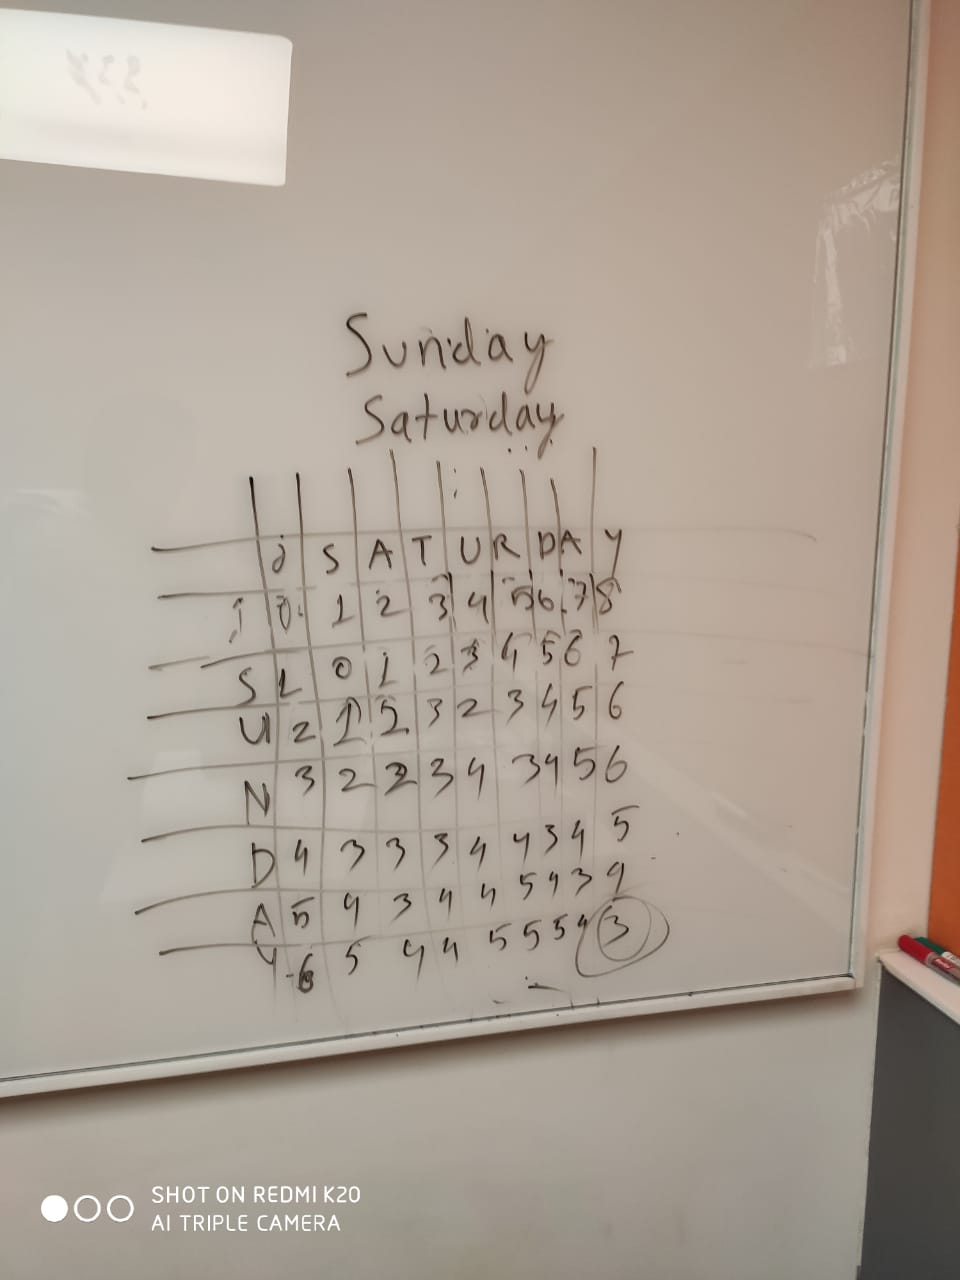 Sunday
Saturday
j S A T U R D A Y
i 0 1 2 3 4 5 6 7 8
S 1 0 1 2 3 4 5 6 7
U 2 1 2 3 2 3 4 5 6
N 3 2 2 3 4 3 4 5 6
D 4 3 3 3 4 4 3 4 5
A 5 4 3 4 4 5 4 3 4
Y 6 5 4 4 5 5 5 4 3
SHOT ON REDMI K20
AI TRIPLE CAMERA